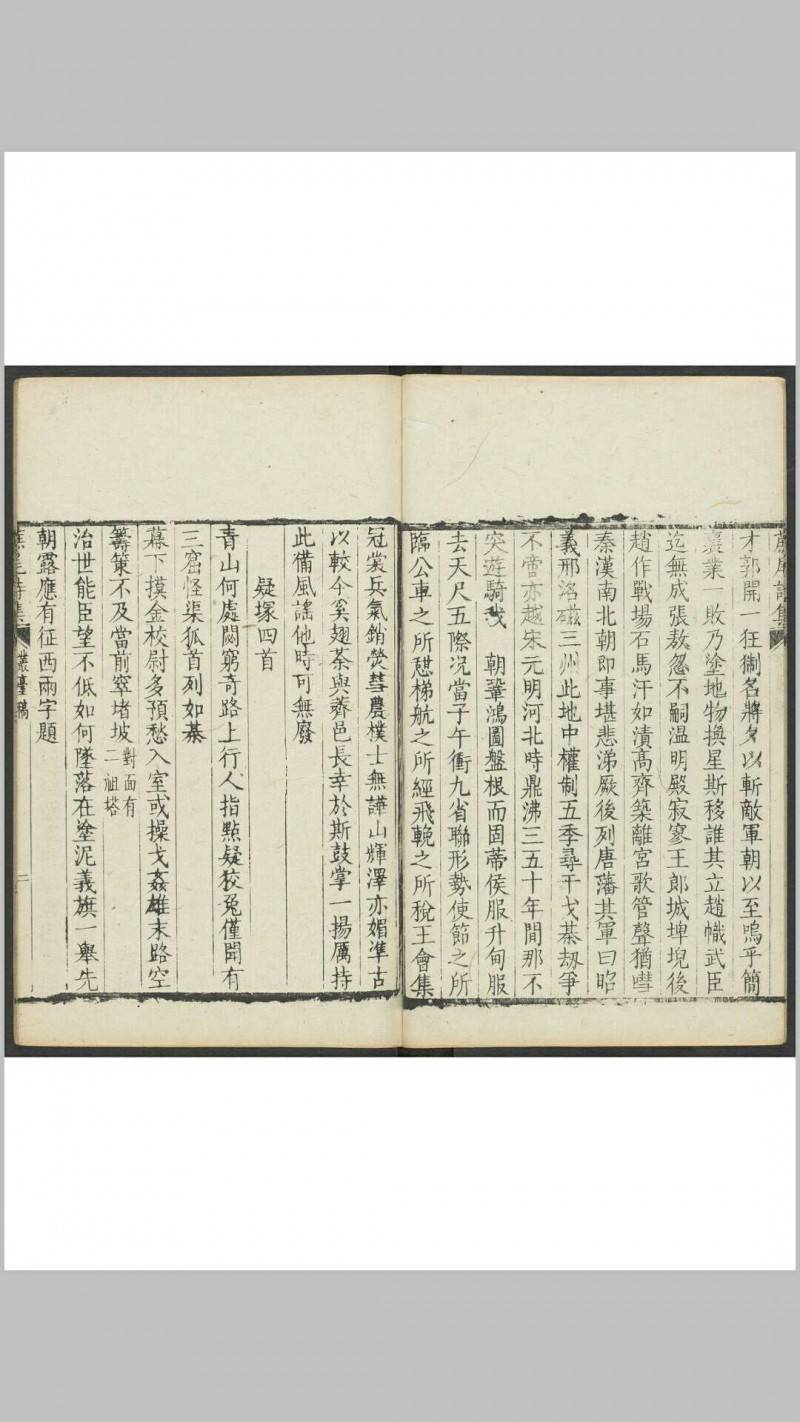 才郭開一狂猘名將夕以斬敵軍朝以至嗚乎簡
襄業一敗乃塗地物換星斯移誰其立趙幟武臣
迄無成張敖忽不嗣温明殿寂寥王郎城埤堄後
趙作戰場石馬汗如漬髙齊築離宮歌管聲猶嘒
秦漢南北朝即事堪悲涕厥後列唐藩其軍曰昭
義邢洺磁三州此地中權制五季尋干戈棊刼爭
不啻亦越宋元明河北時鼎沸三五十年間那不
突遊騎我 朝鞏鴻圖盤根而固蒂侯服升甸服
去天尺五際况當子午衝九省聯形勢使節之所
臨公車之所憇梯航之所經飛輓之所稅王會集
冠裳兵氣銷熒彗農樸士無譁山輝澤亦媚準古
以較今奚翅荼與薺邑長幸於斯鼓掌一揚厲持
此備風謠他時可無廢
疑塚四首
青山何處闕窮奇路上行人指點疑狡兔僅聞有
三窟怪渠狐首列如棊
幕下摸金校尉多預愁入室或操戈姦雄末路空
籌策不及當前窣堵坡對面有二祖塔
治世能臣望不低如何墜落在塗泥義旗一舉先
朝露應有征西兩字題
叢臺稿
二